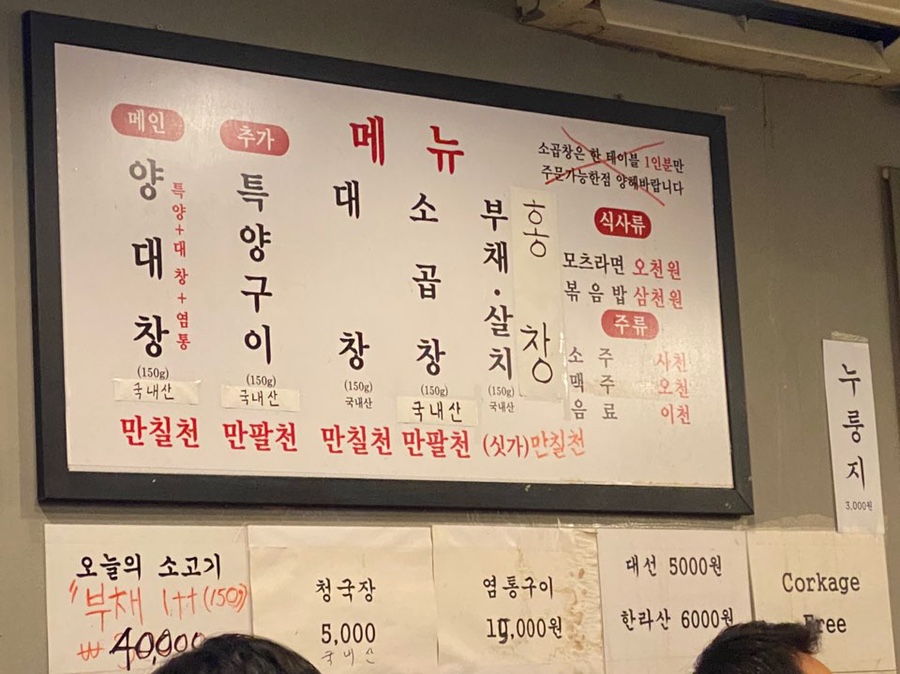 메뉴
메인
양대창
특양+대창+염통
(150g)
국내산
만칠천
추가
특양구이
(150g)
국내산
만팔천
대창
(150g)
국내산
만칠천
소곱창
(150g)
국내산
만팔천
부채·살치
(150g)
국내산
(싯가)
홍창
만칠천
소곱창은 한 테이블 1인분만
주문가능한점 양해바랍니다
식사류
모츠라면 오천원
볶음밥 삼천원
주류
소주 사천
맥주 오천
음료 이천
누룽지
3,000원
오늘의 소고기
"부채 1++(150g)
₩40,000
청국장
5,000
국내산
염통구이
19,000원
대선 5000원
한라산 6000원
Corkage
Free